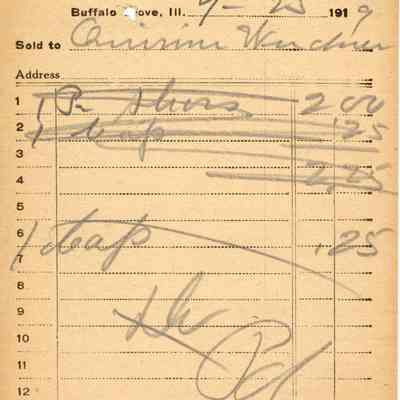 Buffalo Grove, Ill. 9-25 1919
Sold to
Address
1 1 Pr Shoes 2 00
2 1 cap 25
3
4 2.25
5
6 1 cap .25
7
8
9
10 Pd
11
12